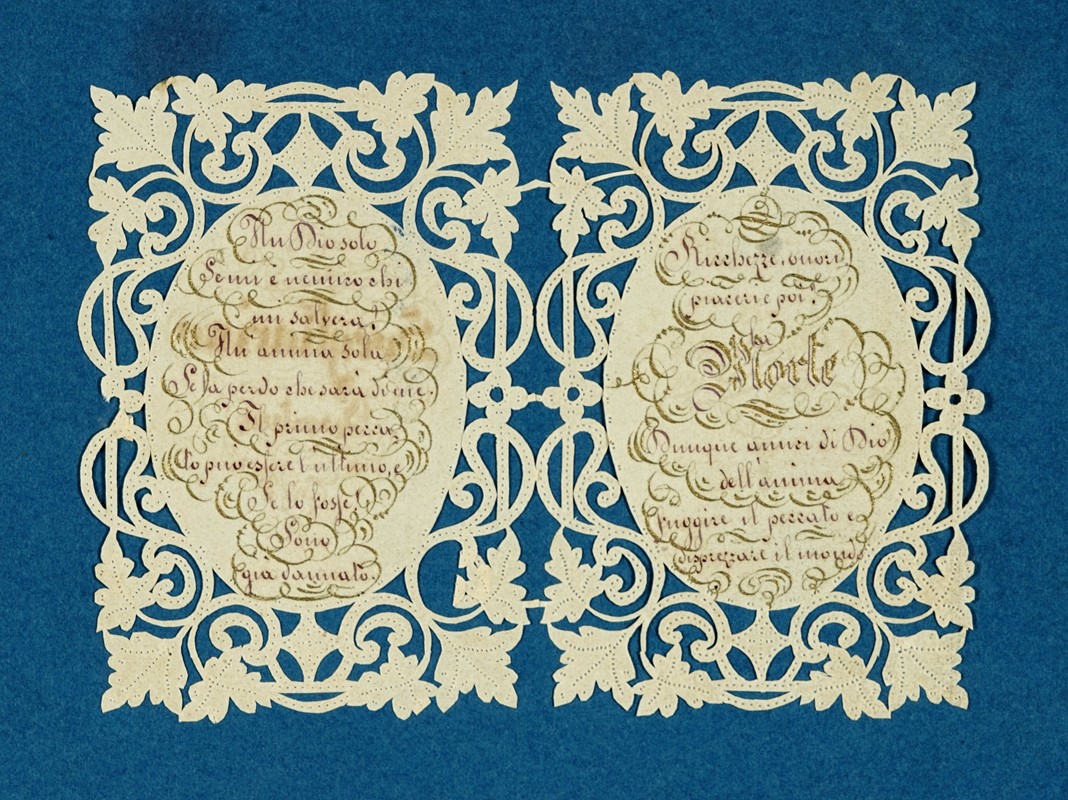 Un Dio solo
Se mi è nemico chi
mi salverà?
Un'anima sola
Se la perdo che sarà di me.
Il primo pecca,
to può essere l'ultimo, e
Se lo fosse!
Sono
gia dannato.
Ricchezze, onori
piaceri e poi?
La
Morte
Dunque amici di Dio
dell'anima
fuggire il peccato e
disprezzare il mondo